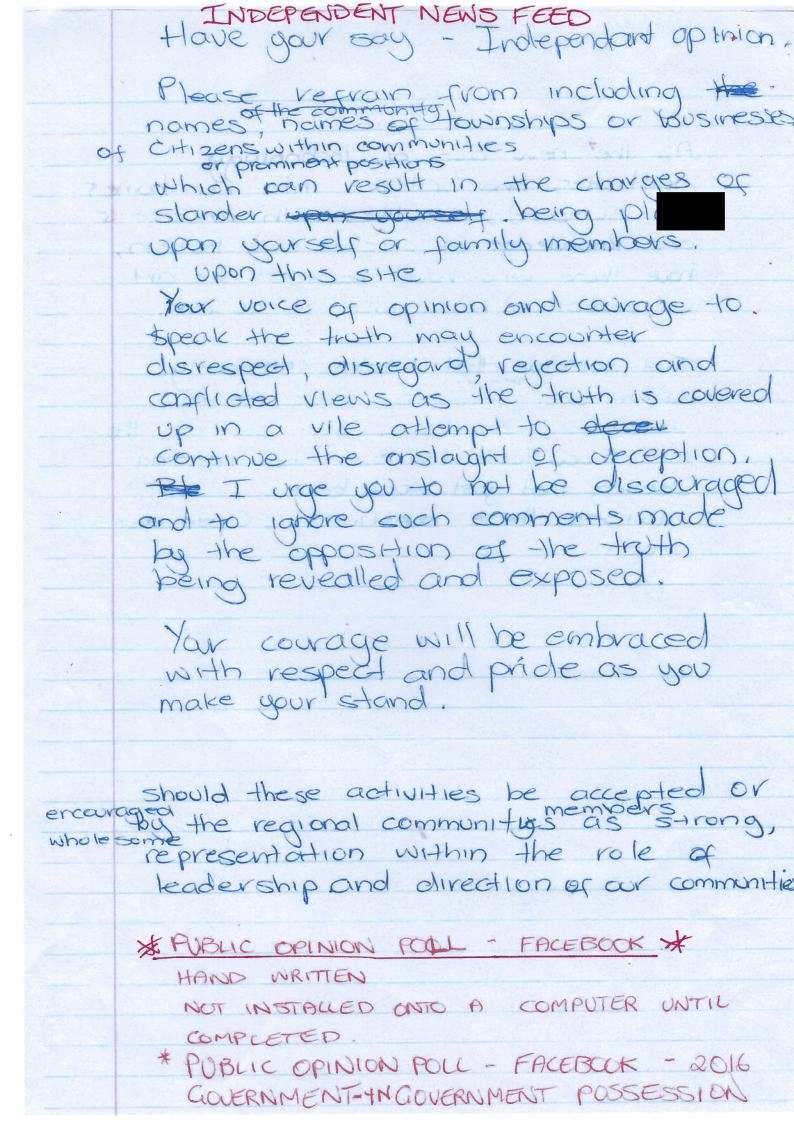 INDEPENDENT NEWS FEED
Have your say - Independant opinion.
Please refrain from including the
of the community,
names, names of townships or businesses
of Citizens within communities
or prominent positions
which can result in the charges of
slander upon yourself being pl
upon yourself or family members.
upon this site
Your voice of opinion and courage to.
speak the truth may encounter
disrespect, disregard, rejection and
conflicted views as the truth is covered
up in a vile attempt to decev
continue the onslaught of deception.
I urge you to not be discouraged
and to ignore such comments made
by the opposition of the truth
being revealled and exposed.
Your courage will be embraced
with respect and pride as you
make your stand.
should these activities be accepted or
encouraged members
by the regional communitys as strong,
wholesome
representation within the role of
leadership and direction of our communitie
* PUBLIC OPINION POLL - FACEBOOK *
HAND WRITTEN
NOT INSTALLED ONTO A COMPUTER UNTIL
COMPLETED.
* PUBLIC OPINION POLL - FACEBOOK - 2016
GOVERNMENT-IN GOVERNMENT POSSESSION